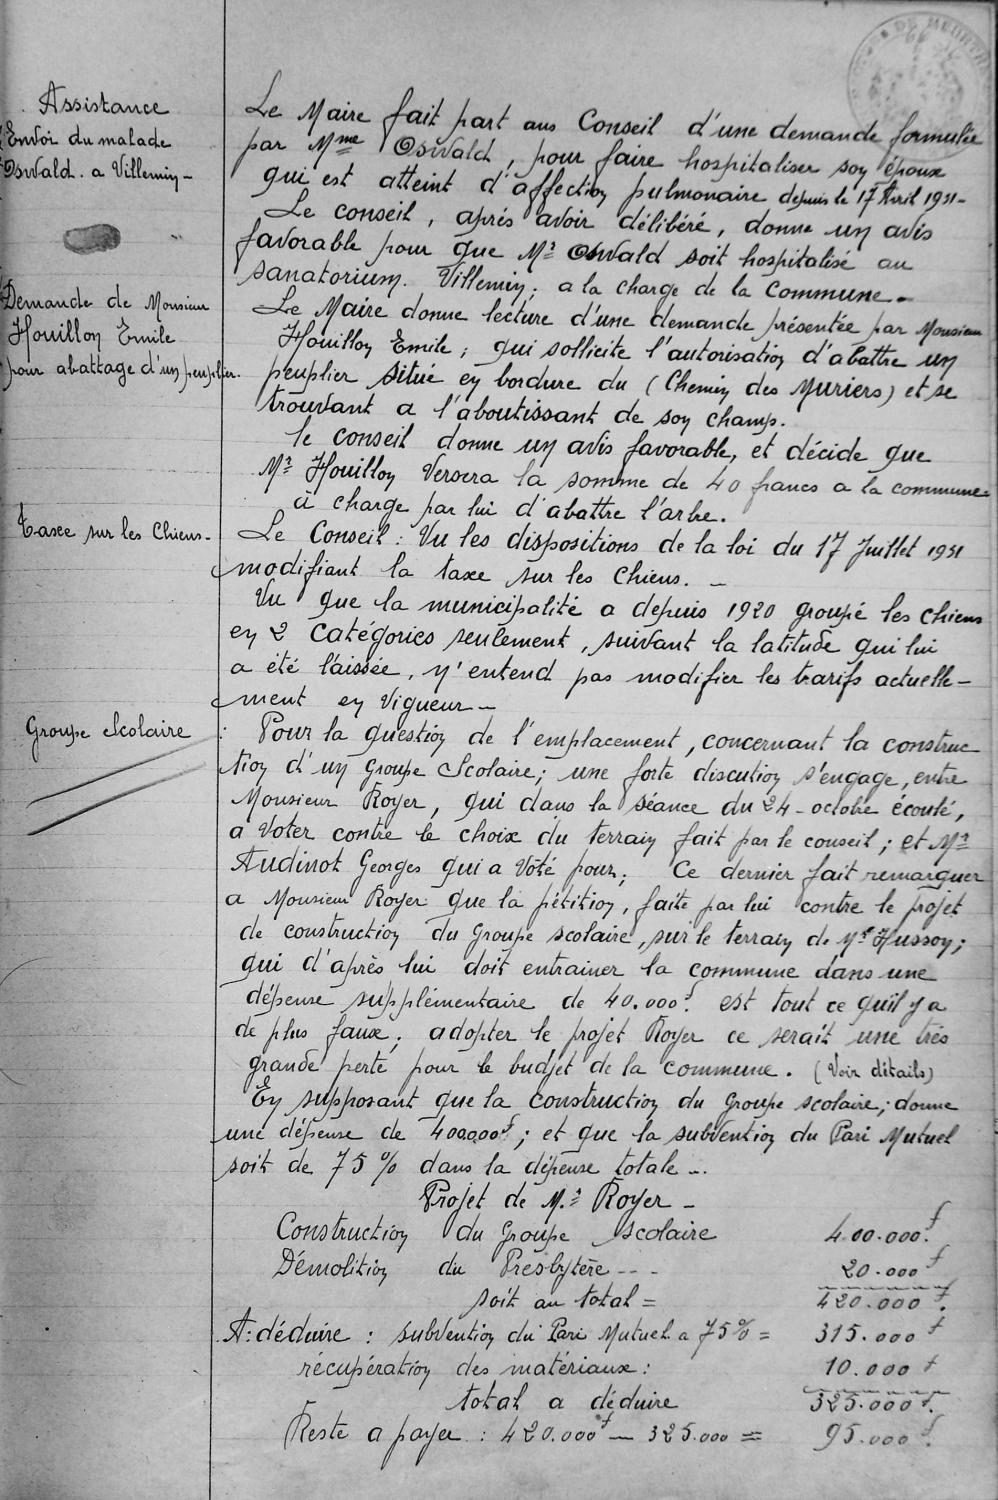 Assistance
Envoi du malade
Oswald. a Villemin -
Le Maire fait part aus Conseil d'une demande formulée
par Mme Oswald, pour faire hospitaliser son époux
qui est atteint d'affection pulmonaire depuis le 17 Avril 1931-
Le conseil, aprés avoir délibéré, donne un avis
favorable pour que Mr Oswald soit hospitalisé au
sanatorium. Villemin; a la charge de la Commune.-
Demande de Monsieur
Houillon Emile
pour abattage d'un peuplier.
Le Maire donne lecture d'une demande présentée par Monsieur
Houillon Emile; qui sollicite l'autorisation d'abattre un
peuplier situé en bordure du (Chemin des Muriers) et se
trouvant a l'aboutissant de son champ.
le conseil donne un avis favorable, et décide que
Mr Houillon Versera la somme de 40 francs a la commune
à charge par lui d'abattre l'arbre.
Taxe sur les Chiens-
Le Conseil: Vu les dispositions de la loi du 17 Juillet 1931
modifiant la taxe sur les Chiens. -
Vu que la municipalité a depuis 1920 groupé les chiens
en 2 Catégories seulement, suivant la latitude qui lui
a été laissée, n'entend pas modifier les tarifs actuelle-
ment en Vigueur-
Groupe Scolaire
Pour la question de l'emplacement, concernant la construc
tion d'un Groupe Scolaire; une forte discution s'engage, entre
Monsieur Royer, qui dans la séance du 24-octobre écoulé,
a Voter contre le choix du terrain fait par le conseil; et Mr
Audinot Georges qui a Voté pour; Ce dernier fait remarquer
a Monsieur Royer que la pétition, faite par lui contre le projet
de construction du Groupe scolaire, sur le terrain de Mr Husson;
qui d'après lui doit entrainer la commune dans une
dépense supplémentaire de 40.000f est tout ce qu'il y a
de plus faux; adopter le projet Royer ce serait une trés
grande perte pour le budjet de la commune. (Voir détails)
En supposant que la Construction du Groupe scolaire; donne
une dépense de 400.000f; et que la subvention du Pari Mutuel
soit de 75% dans la dépense totale-.
Projet de Mr Royer -
Construction du Groupe Scolaire 400.000f.
Démolition du Presbytère - - - 20.000f
soit au total = 420.000f.
A: déduire: subvention du Pari Mutuel a 75% = 315.000f
récupération des matériaux: 10.000f
total a déduire 325.000f.
Reste a payer: 420.000f - 325.000 = 95.000f.